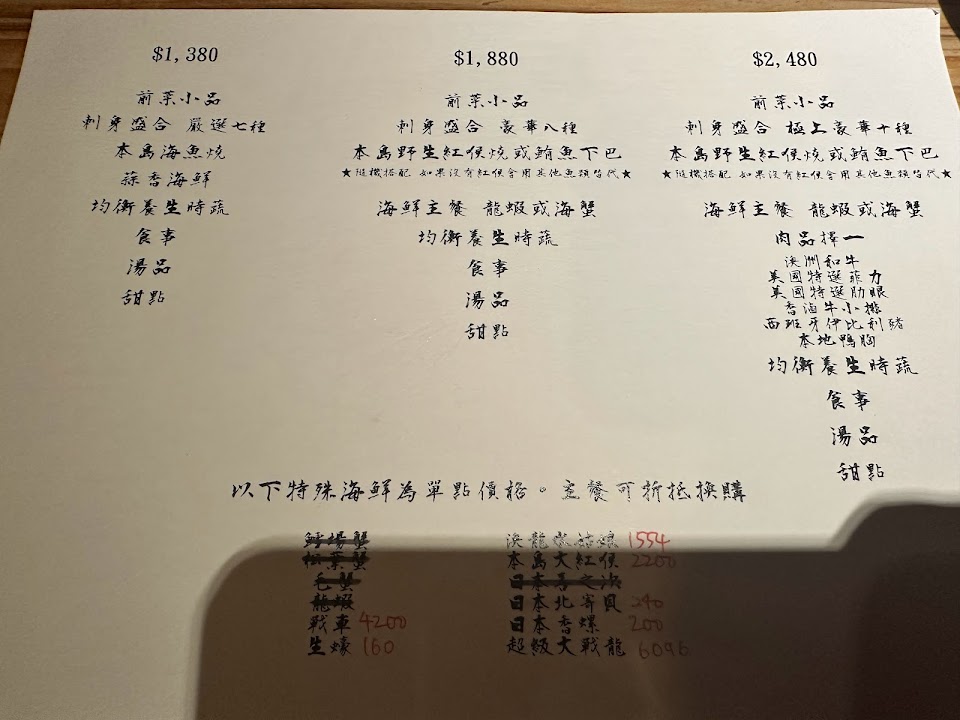 $1,380
前菜小品
刺身盛合 嚴選七種
本島海魚燒
蒜香海鮮
均衡養生時蔬
食事
湯品
甜點
$1,880
前菜小品
刺身盛合 豪華八種
本島野生紅條燒或鮪魚下巴
★隨機搭配 如果沒有紅條會用其他魚類替代★
海鮮主餐 龍蝦或海蟹
均衡養生時蔬
食事
湯品
甜點
$2,480
前菜小品
刺身盛合 極上豪華十種
本島野生紅條燒或鮪魚下巴
★隨機搭配 如果沒有紅條會用其他魚類替代★
海鮮主餐 龍蝦或海蟹
肉品擇一
澳洲和牛
美國特選菲力
美國特選肋眼
香滷牛小排
西班牙伊比利豬
本地鴨胸
均衡養生時蔬
食事
湯品
甜點
以下特殊海鮮為單點價格。主餐可折抵換購
鱈場蟹
松葉蟹
毛蟹
龍蝦
戰車 4200
生蠔 160
澳龍 1554
本島大紅條 2200
日本喜之次
日本北寄貝 240
日本香螺 200
超級大戰龍 6096